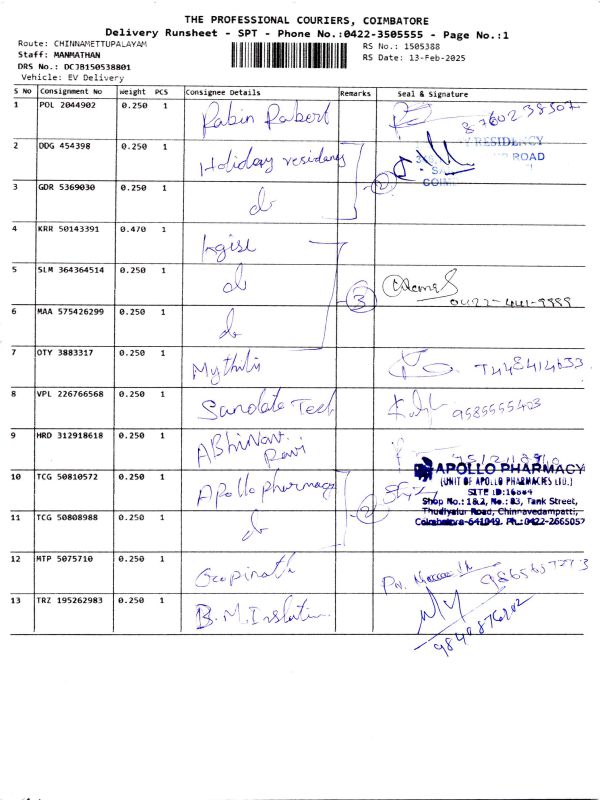 THE PROFESSIONAL COURIERS, COIMBATORE
Delivery Runsheet - SPT - Phone No.:0422-3505555 - Page No.:1
Route: CHINNAMETTUPALAYAM
RS No.: 1505388
Staff: MANMATHAN
RS Date: 13-Feb-2025
DRS No.: DCJB150538801
Vehicle: EV Delivery
S No Consignment No Weight PCS Consignee Details Remarks Seal & Signature
1 POL 2044902 0.250 1 Rabin Robert 8760238507
2 DDG 454398 0.250 1 Holiday residency RESIDENCY
ROAD
3 GDR 5369030 0.250 1 do 2
4 KRR 50143391 0.470 1
5 SLM 364364514 0.250 1 do 3
6 MAA 575426299 0.250 1 do
7 OTY 3883317 0.250 1 Mythili
8 VPL 226766568 0.250 1 Tech 9585555403
9 HRD 312918618 0.250 1 ABhinav. Ravi
10 TCG 50810572 0.250 1 Apollo pharmacy 2
APOLLO PHARMACY
(UNIT OF APOLLO PHARMACIES LTD.)
Shop No.: 1&2, No.: 83, Tank Street,
Thudiyalur Road, Chinnavedampatti,
Coimbatore-641049. Ph.:0422-2665057
11 TCG 50808988 0.250 1 do
12 MTP 5075710 0.250 1 Gopinath
13 TRZ 195262983 0.250 1 B.M.
9840876202